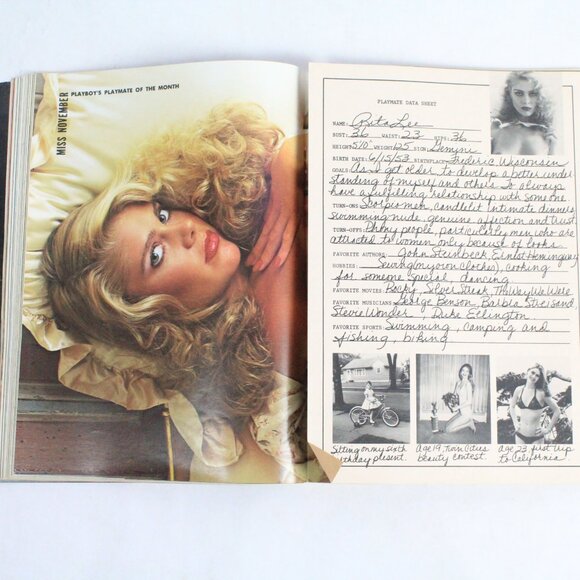 MISS NOVEMBER
PLAYBOY'S PLAYMATE OF THE MONTH
PLAYMATE DATA SHEET
NAME: Rita Lee
BUST: 36 WAIST: 23 HIPS: 36
HEIGHT: 5'10" WEIGHT: 125 SIGN: Gemini
BIRTH DATE: 6/15/53 BIRTHPLACE: Frederic, Wisconsin
GOALS: As I get older to develop a better under
standing of myself and others. To always
have a fulfilling relationship with someone
TURN-ONS: Scorpio men, candlelit intimate dinners,
swimming nude, genuine affection and trust
TURN-OFFS: Phony people, particularly men who are
attracted to women only because of looks.
FAVORITE AUTHORS: John Steinbeck, Ernest Hemingway
HOBBIES: Sewing (my own clothes), cooking
for someone special, dancing
FAVORITE MOVIES: Rocky, Silver Streak, The Way We Were
FAVORITE MUSICIANS: George Benson, Barbra Streisand,
Stevie Wonder, Duke Ellington
FAVORITE SPORTS: Swimming, camping and
fishing, biking
Sitting on my sixth
birthday present.
Age 19, Twin Cities
beauty contest.
Age 23, first trip
to California!